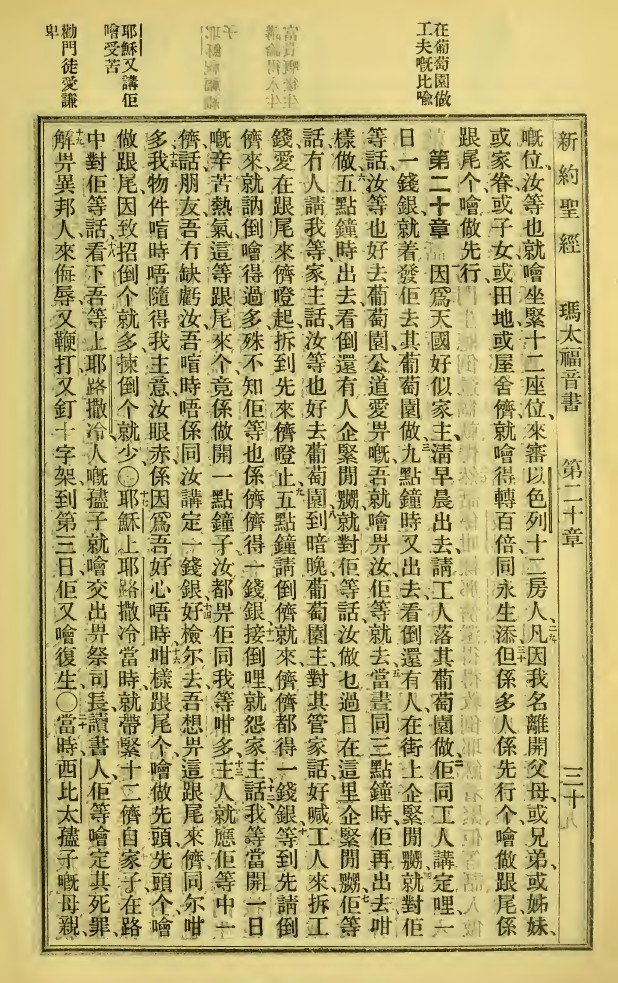 新約聖經 瑪太福音書 第二十章 三十八
嘅位、汝等也就噲坐緊十二座位、來審以色列十二房人、凡因我名離開父母、或兄弟、或姊妹、
或家眷、或子女、或田地、或屋舍儕、就噲得轉百倍、同永生添、但係多人係先行个噲做跟尾、係
跟尾个噲做先行、
第二十章 因爲天國好似家主、清早晨出去請工人落其葡萄園做、佢同工人講定哩一
日一錢銀、就着發佢去其葡萄園做、九點鐘時又出去、看倒還有人在街上企緊閒嬲、就對佢
等話、汝等也好去葡萄園、公道愛畀嘅、吾就噲畀汝、佢等就去、當晝同三點鐘時、佢再出去咁
樣做、五點鐘時出去、看倒還有人企緊閒嬲、就對佢等話、汝做乜過日在這里企緊閒嬲、佢等
話、冇人請我等、家主話、汝等也好去葡萄園、到暗晚葡萄園主對其管家話、好喊工人來拆工
錢、愛在跟尾來儕噔起、拆到先來儕噔止、五點鐘請倒儕就來、儕儕都得一錢銀、等到先請倒
儕來、就訥倒噲得過多、殊不知佢等也係儕儕得一錢銀、接倒哩就怨家主話、我等當開一日
嘅辛苦熱氣、這等跟尾來个、竟係做開一點鐘子、汝都畀佢同我等咁多、主人就應佢等中一
儕話、朋友、吾冇缺虧汝、吾喑時唔係同汝講定一錢銀、好檢尔去、吾想畀這跟尾來儕同尔咁
多、我物件喑時唔隨得我主意、汝眼赤、係因爲吾好心唔時、咁樣跟尾个噲做先頭、先頭个噲
做跟尾、因致招倒个就多、揀倒个就少、〇耶穌上耶路撒冷當時、就帶緊十二儕自家子、在路
中對佢等話、看下吾等上耶路撒冷、人嘅孻子就噲交出畀祭司長、讀書人、佢等噲定其死罪、
解畀異邦人來侮辱、又鞭打、又釘十字架、到第三日佢又噲復生、〇當時西比太孻子嘅母親、
在葡萄園做
工夫嘅比喻
耶穌又講佢
噲受苦
勸門徒愛謙
卑